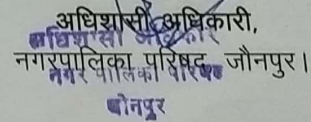 अधिशासी अधिकारी,
अधिशासी अधिकारी
नगरपालिका परिषद, जौनपुर।
नगर पालिका परिषद
जौनपुर